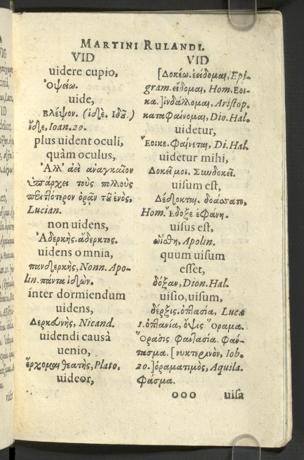 MARTINI RULANDI.
VID
uidere cupio,
Ὀψείω.
uide,
Βλέψον. (ἰδὲ. Ἰδὰ.)
ἴδε, Ioan. 20.
plus uident oculi,
quàm oculus,
Ἀλλ' ἀεὶ ἀναγκαῖον
ὑπάρχει τοὺς πολλοὺς
ὁρᾶν τοῦ ἑνὸς,
Lucian.
non uidens,
Ἀδερκής. ἄδερκτος.
uidens omnia,
πανδερκὴς, Nonn. Apo-
lin. πάντα ἰδών.
inter dormiendum
uidens,
Δερκευνὴς, Nicand.
uidendi causà
uenio,
ἔρχομαι θεατὴς, Plato.
uideor,
VID
[Δοκέω. εἴδομαι, Epi-
gram. εἰδομαι, Hom. Εοι-
κα.] ἰνδάλλομαι, Aristop.
καταφαίνομαι, Dio. Hal.
uidetur,
Ἔοικε. Φαίνεται, Di. Hal.
uidetur mihi,
Δοκεῖ μοι. Συνδοκεῖ.
uisum est,
Δέδοκται.
Hom. ἔδοξε ἐφάνη.
uisus est,
ὤφθη, Apolin.
quum uisum
esset,
δόξαν, Dion. Hal.
uisio, uisum,
δέρξις. ὀπτασία, Lucæ
1. ὀπτανία, ὄψις ὅραμα.
Ὅρασις Φαντασία. Φάν-
τασμα. [νυκτερινὸν, Iob.
20.] ὁραματισμὸς, Aquila.
Φάσμα.
ooo uisa